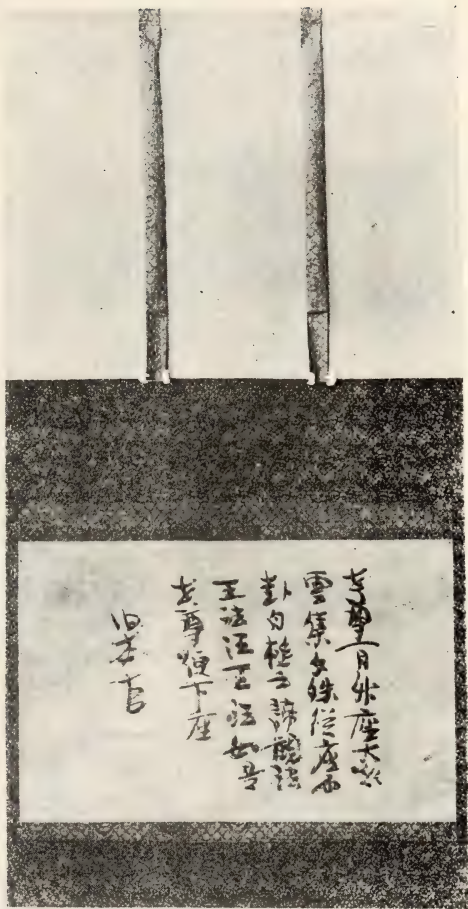 世尊一日升座大衆
雲集文殊從座而
白槌云諦觀法
王法法王法如是
世尊便下座